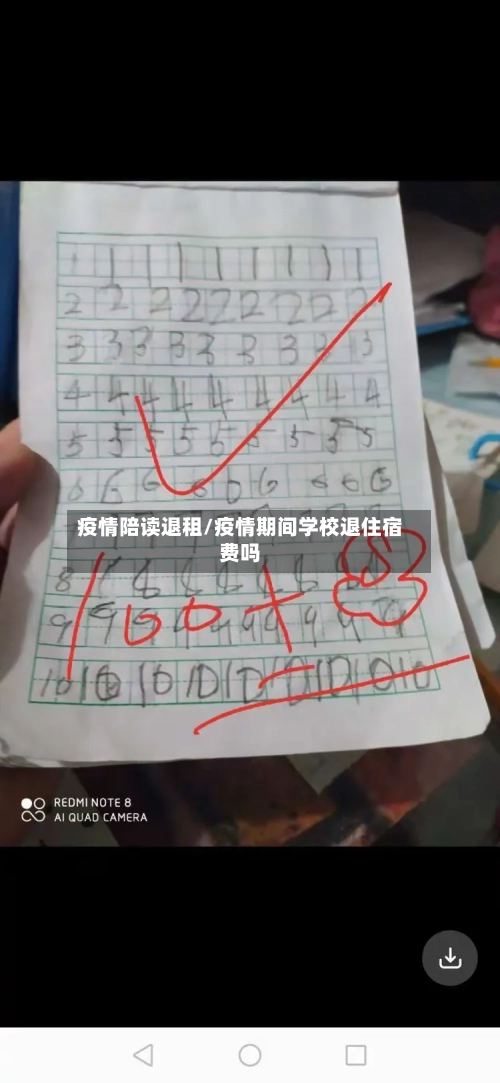 1 1 1 1 1 1 1 1 1
2 2 2 2 2 2 2 2 2
3 3 3 3 3 3 3 3 3
4 4 4 4 4 4 4 4 4
5 5 5 5 5 5 5 5 5
6 6 6 6 6 6 6 6 6
疫情陪读退租/疫情期间学校退住宿
费吗
8 8 8 8 8 8 8
100+
9 9 9 9 9 9 9 9
10 10 10 10 10 10 10 10 10
REDMI NOTE 8
AI QUAD CAMERA